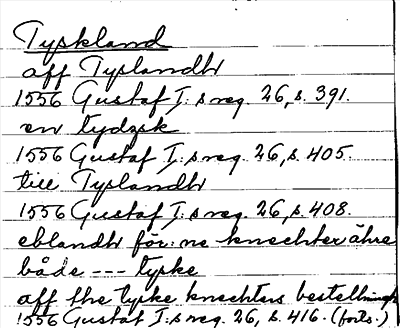 Tyskland
aff Tyslandh
1556 Gustaf I:s reg. 26, s. 391.
en tydzsk
1556 Gustaf I:s reg. 26, s. 405.
till Tyslandh
1556 Gustaf I:s reg. 26, s. 408.
eblandh för:ne knechter ähre
både --- tyske
aff the tyske knechters bestellning
1556 Gustaf I:s reg. 26, s. 416. (forts.)